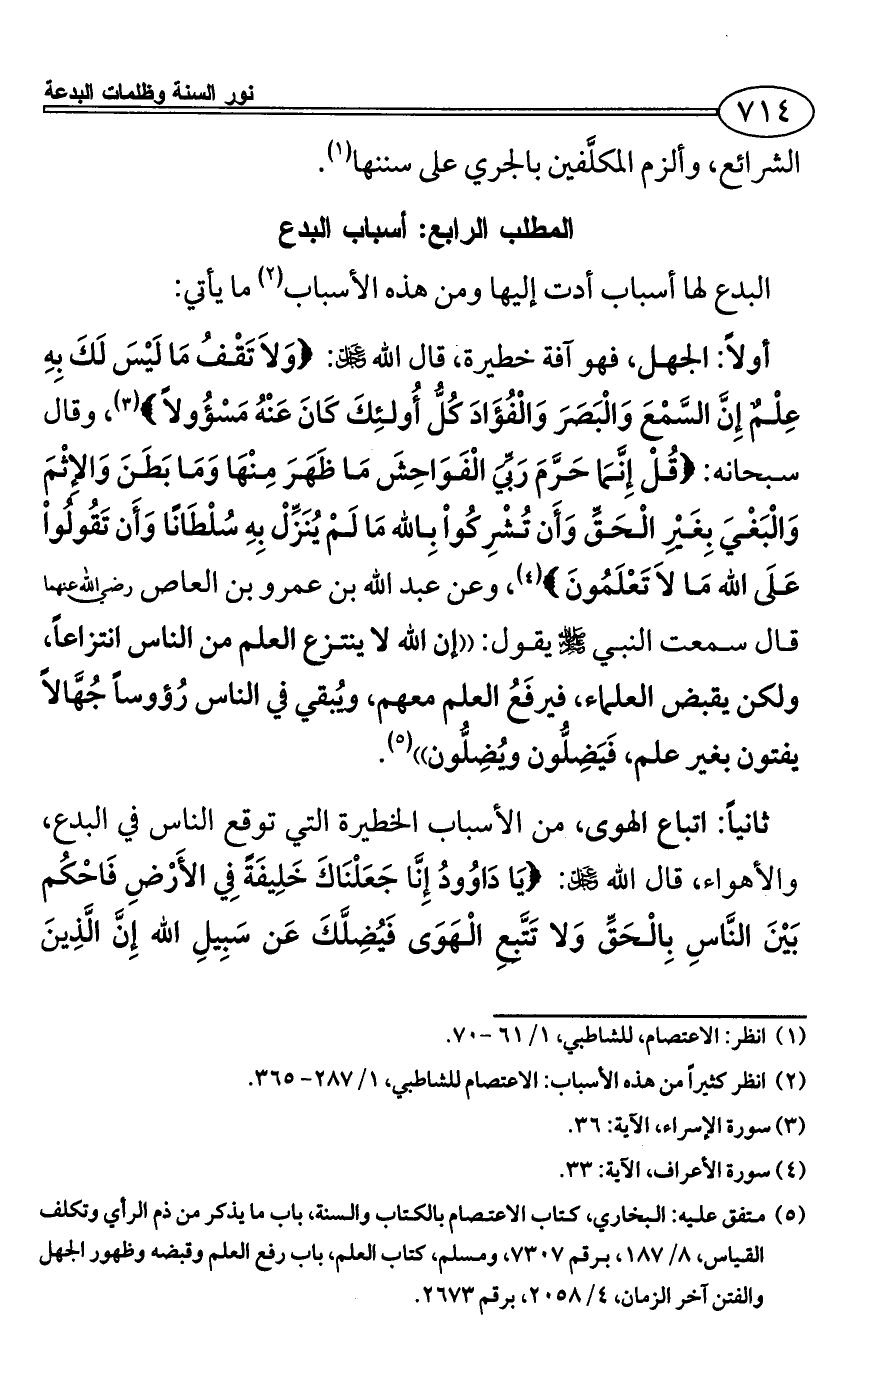 نور السنة وظلمات البدعة
٧١٤
الشرائع، وألزم المكلَّفين بالجري على سننها(١).
المطلب الرابع: أسباب البدع
البدع لها أسباب أدت إليها ومن هذه الأسباب(٢) ما يأتي:
أولاً: الجهل، فهو آفة خطيرة، قال الله ﷻ: ﴿وَلاَ تَقْفُ مَا لَيْسَ لَكَ بِهِ
عِلْمٌ إِنَّ السَّمْعَ وَالْبَصَرَ وَالْفُؤَادَ كُلُّ أُولـئِكَ كَانَ عَنْهُ مَسْؤُولاً﴾(٣)، وقال
سبحانه: ﴿قُلْ إِنَّمَا حَرَّمَ رَبِّيَ الْفَوَاحِشَ مَا ظَهَرَ مِنْهَا وَمَا بَطَنَ وَالإِثْمَ
وَالْبَغْيَ بِغَيْرِ الْحَقِّ وَأَن تُشْرِكُواْ بِالله مَا لَمْ يُنَزِّلْ بِهِ سُلْطَانًا وَأَن تَقُولُواْ
عَلَى الله مَا لاَ تَعْلَمُونَ﴾(٤)، وعن عبد الله بن عمرو بن العاص رضي الله عنهما
قال سمعت النبي ﷺ يقول: ((إن الله لا ينتزع العلم من الناس انتزاعاً،
ولكن يقبض العلماء، فيرفَعُ العلم معهم، ويُبقي في الناس رُؤوساً جُهَّالاً
يفتون بغير علم، فَيَضِلُّون ويُضِلُّون))(٥).
ثانياً: اتباع الهوى، من الأسباب الخطيرة التي توقع الناس في البدع،
والأهواء، قال الله ﷻ: ﴿يَا دَاوُودُ إِنَّا جَعَلْنَاكَ خَلِيفَةً فِي الأَرْضِ فَاحْكُم
بَيْنَ النَّاسِ بِالْحَقِّ وَلا تَتَّبِعِ الْهَوَى فَيُضِلَّكَ عَن سَبِيلِ الله إِنَّ الَّذِينَ
(١) انظر: الاعتصام، للشاطبي، ١/ ٦١ -٧٠.
(٢) انظر كثيراً من هذه الأسباب: الاعتصام للشاطبي، ١/ ٢٨٧- ٣٦٥.
(٣) سورة الإسراء، الآية: ٣٦.
(٤) سورة الأعراف، الآية: ٣٣.
(٥) متفق عليه: البخاري، كتاب الاعتصام بالكتاب والسنة، باب ما يذكر من ذم الرأي وتكلف
القياس، ٨/ ١٨٧، برقم ٧٣٠٧، ومسلم، كتاب العلم، باب رفع العلم وقبضه وظهور الجهل
والفتن آخر الزمان، ٤/ ٢٠٥٨، برقم ٢٦٧٣.